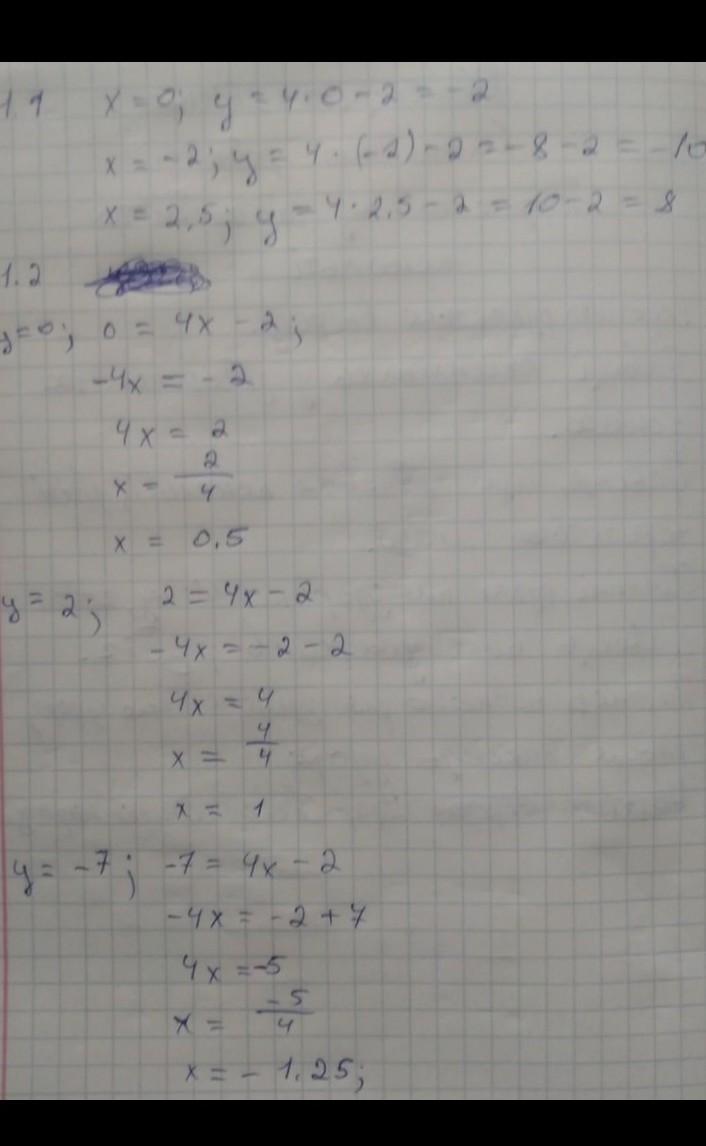 1.1 x = 0; y = 4·0 - 2 = -2
x = -2; y = 4·(-2) - 2 = -8 - 2 = -10
x = 2,5; y = 4·2,5 - 2 = 10 - 2 = 8
1.2
y = 0; 0 = 4x - 2;
-4x = -2
4x = 2
x = 2/4
x = 0.5
y = 2; 2 = 4x - 2
-4x = -2 - 2
4x = 4
x = 4/4
x = 1
y = -7; -7 = 4x - 2
-4x = -2 + 7
4x = -5
x = -5/4
x = -1.25;